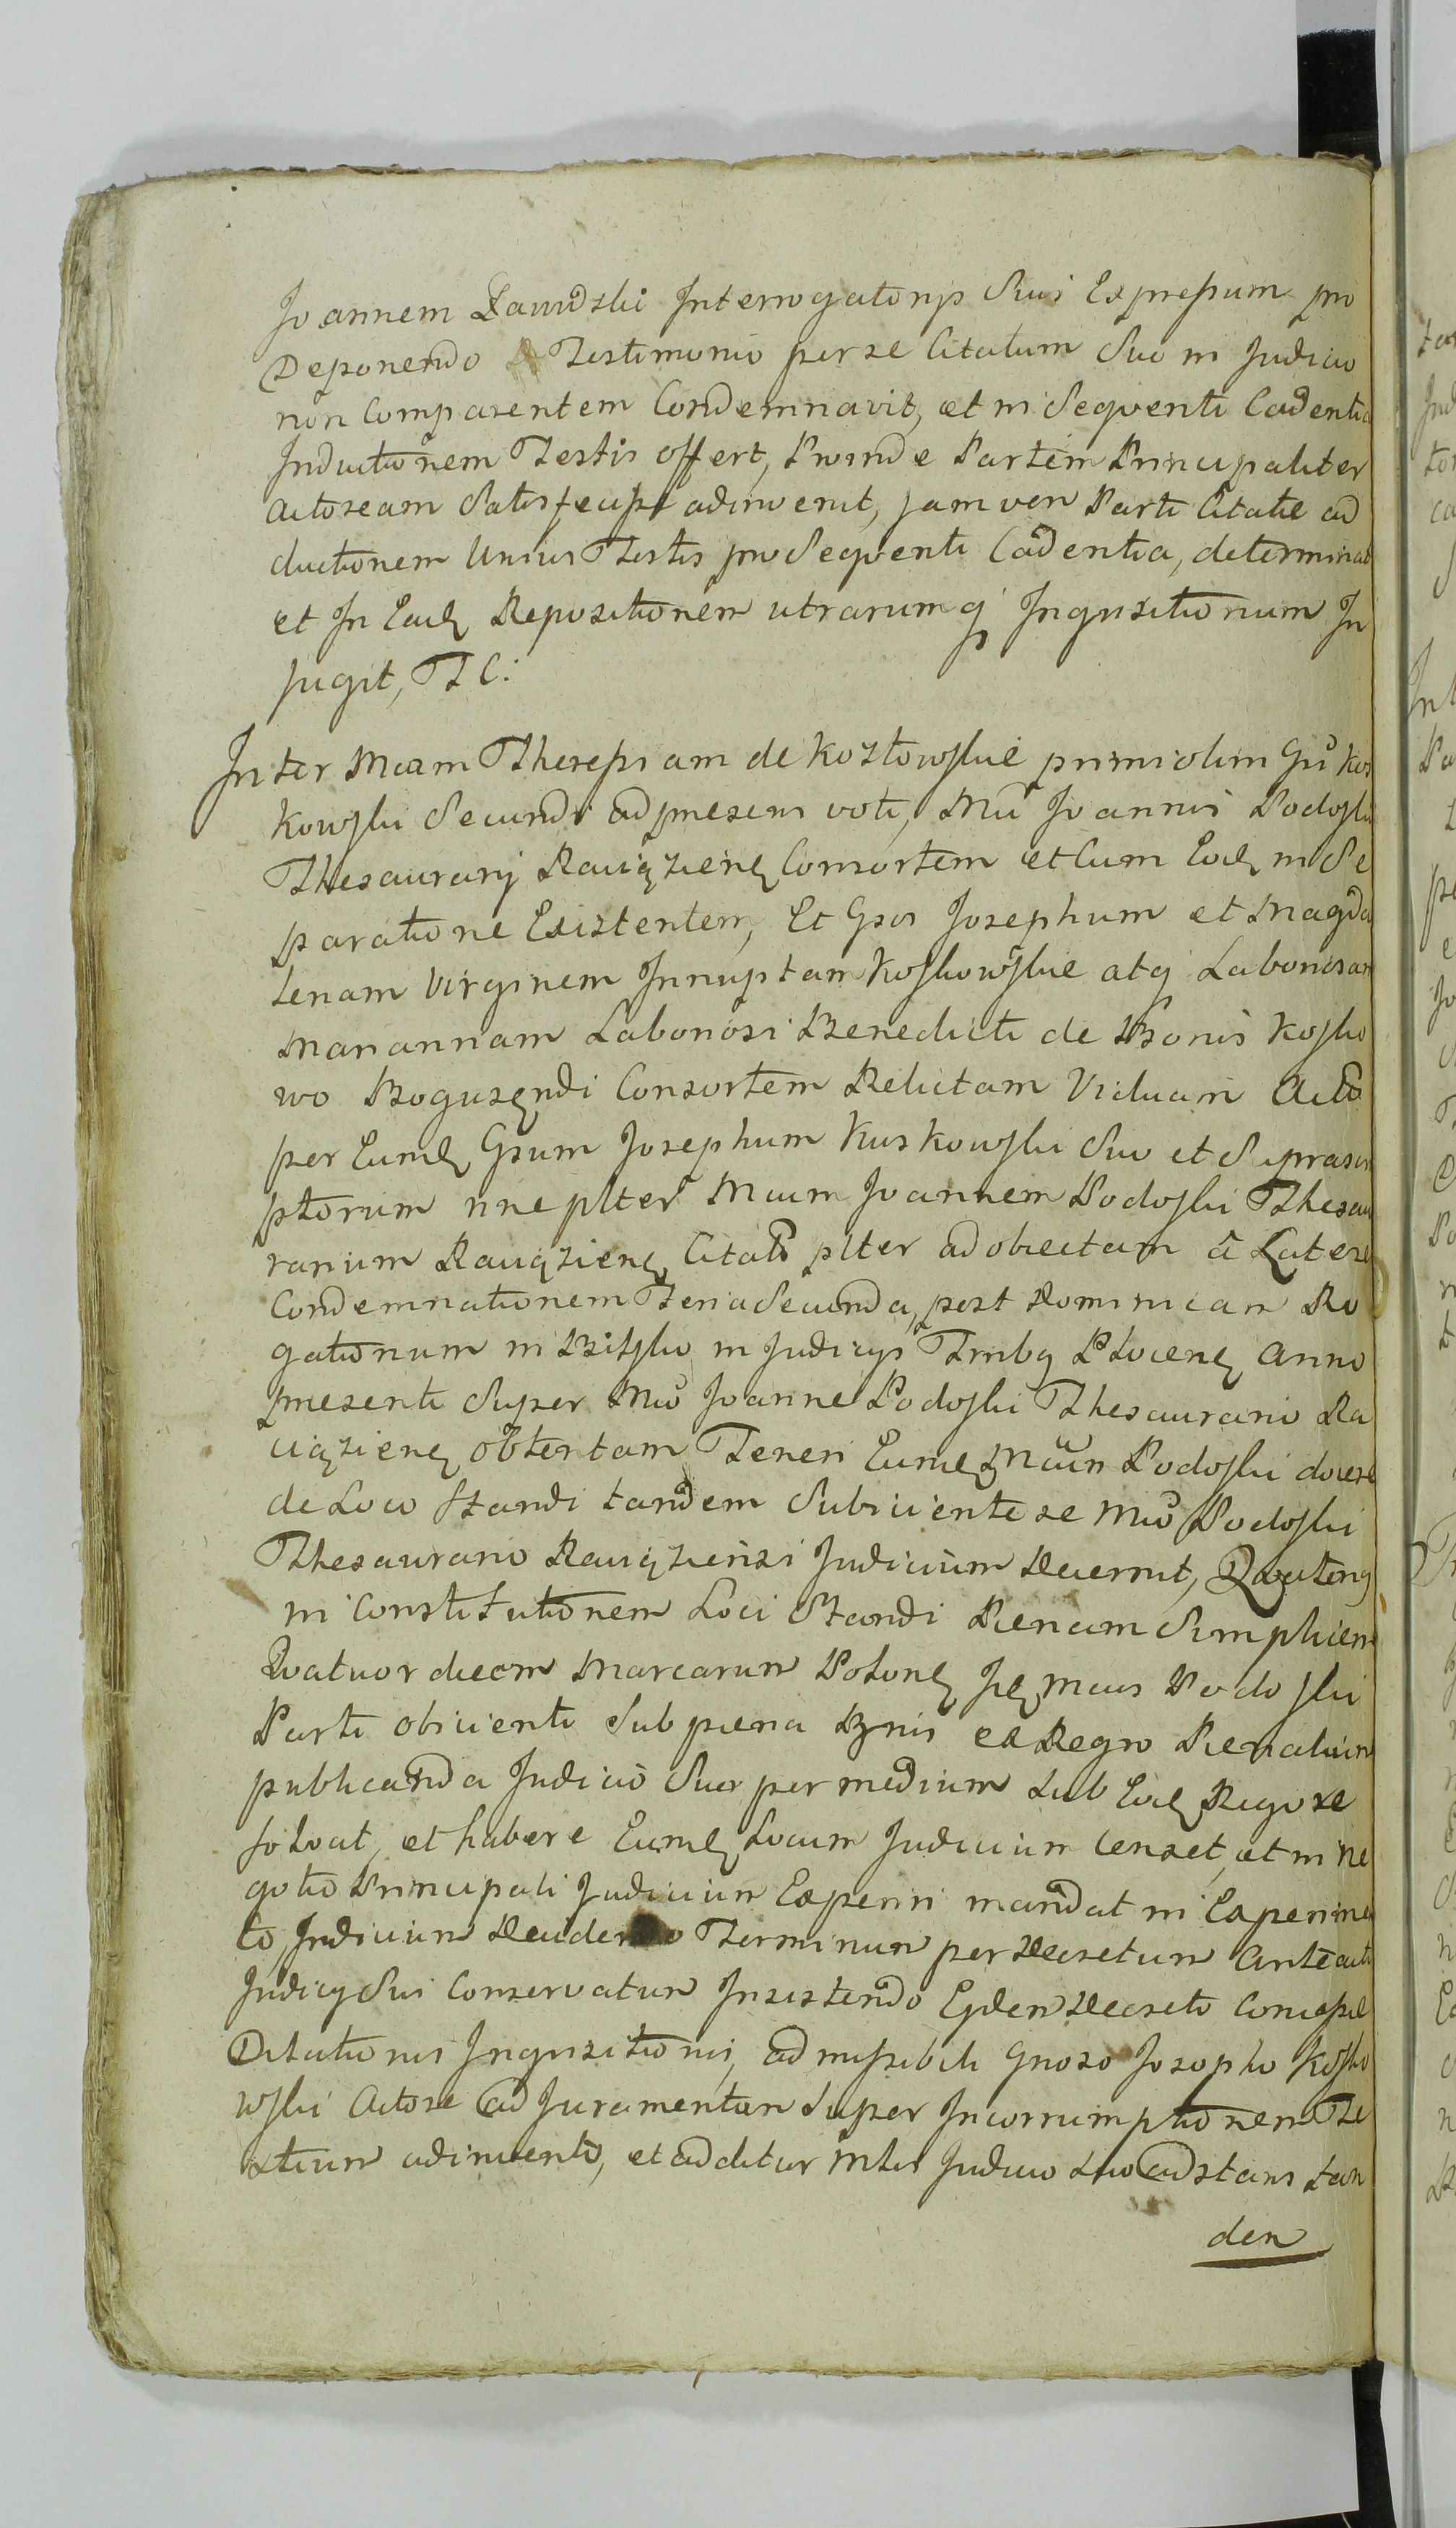 Joannem Zawidzki Interrogatorijs Suis Expressum pro
Deponendo Testimonio per se Citatum Suo in Judicio
non Comparentem Condemnavit, et in Sequenti Cadentia
Inductionem Testis offert, Proinde Partem Principaliter
Actoream Satisfecisse adinvenit, jam vero Parti Citatæ ad
ductionem Unius Testis pro Sequenti Cadentia, determinat
et In Ead Repositionem utrarumq Inquisitionum In
jugit, T C:
Inter Mcam Theressiam de Kozłowskie primi olim Gsi Kos
kowski Secundi ad præsens voti, Mci Joannis Podoski
Thesaurarij Raciązien Consortem et Cum Eod in Se
paratione Existentem, Et Gsos Josephum et Magda
lenam Virginem Innuptam Koskowskie atq Laboriosam
Mariannam Laboriosi Benedicti de Bonis Kosko
wo Boguszndi Consortem Relictam Viduam Acto
per Eumd Gsum Josephum Kuskowski Suo et Suprascri
ptorum nne plter Mcum Joannem Podoski Thesau
rarium Raciązien Citato plter ad obiectam à Latere
Condemnationem Feria Secunda, post Dominicam Ro
gationum in Bilsko in Judicijs Trnlbq Plocen Anno
præsenti Super Mco Joanne Podoski Thesaurario Ra
ciązien obtentam Teneri Eumd Mcum Podoski docere
de Loco Standi tandem Subiciente se Mco Podoski
Thesaurario Raciąziensi Judicium Decernit, Quatenq
in Constitutionem Loci Standi Pænam Simplicem
Quatuordecem Marcarum Polon Id Mcus Podoski
Parti obicienti Sub pæna Bnis ex Regno Penalium
publicanda Judicio Suo per medium Sub Ead Rigore
solvat, et habere Eumd Locum Judicium Censet, et in Ne
gotio Principali Judicium Experiri mandat in Experimen
to Judicium Terminum per Decretum Anteacti
Judicij Sui Conservatum Insistendo Ejdem Decreto
Dilationis Inquisitionis, admissibili Gnoso Josepho Kosko
wski Actore ad Juramentum Super Incorrumptionem Te
stium adinvento, et additur Mltis Judicio Suo adstans tan
dem